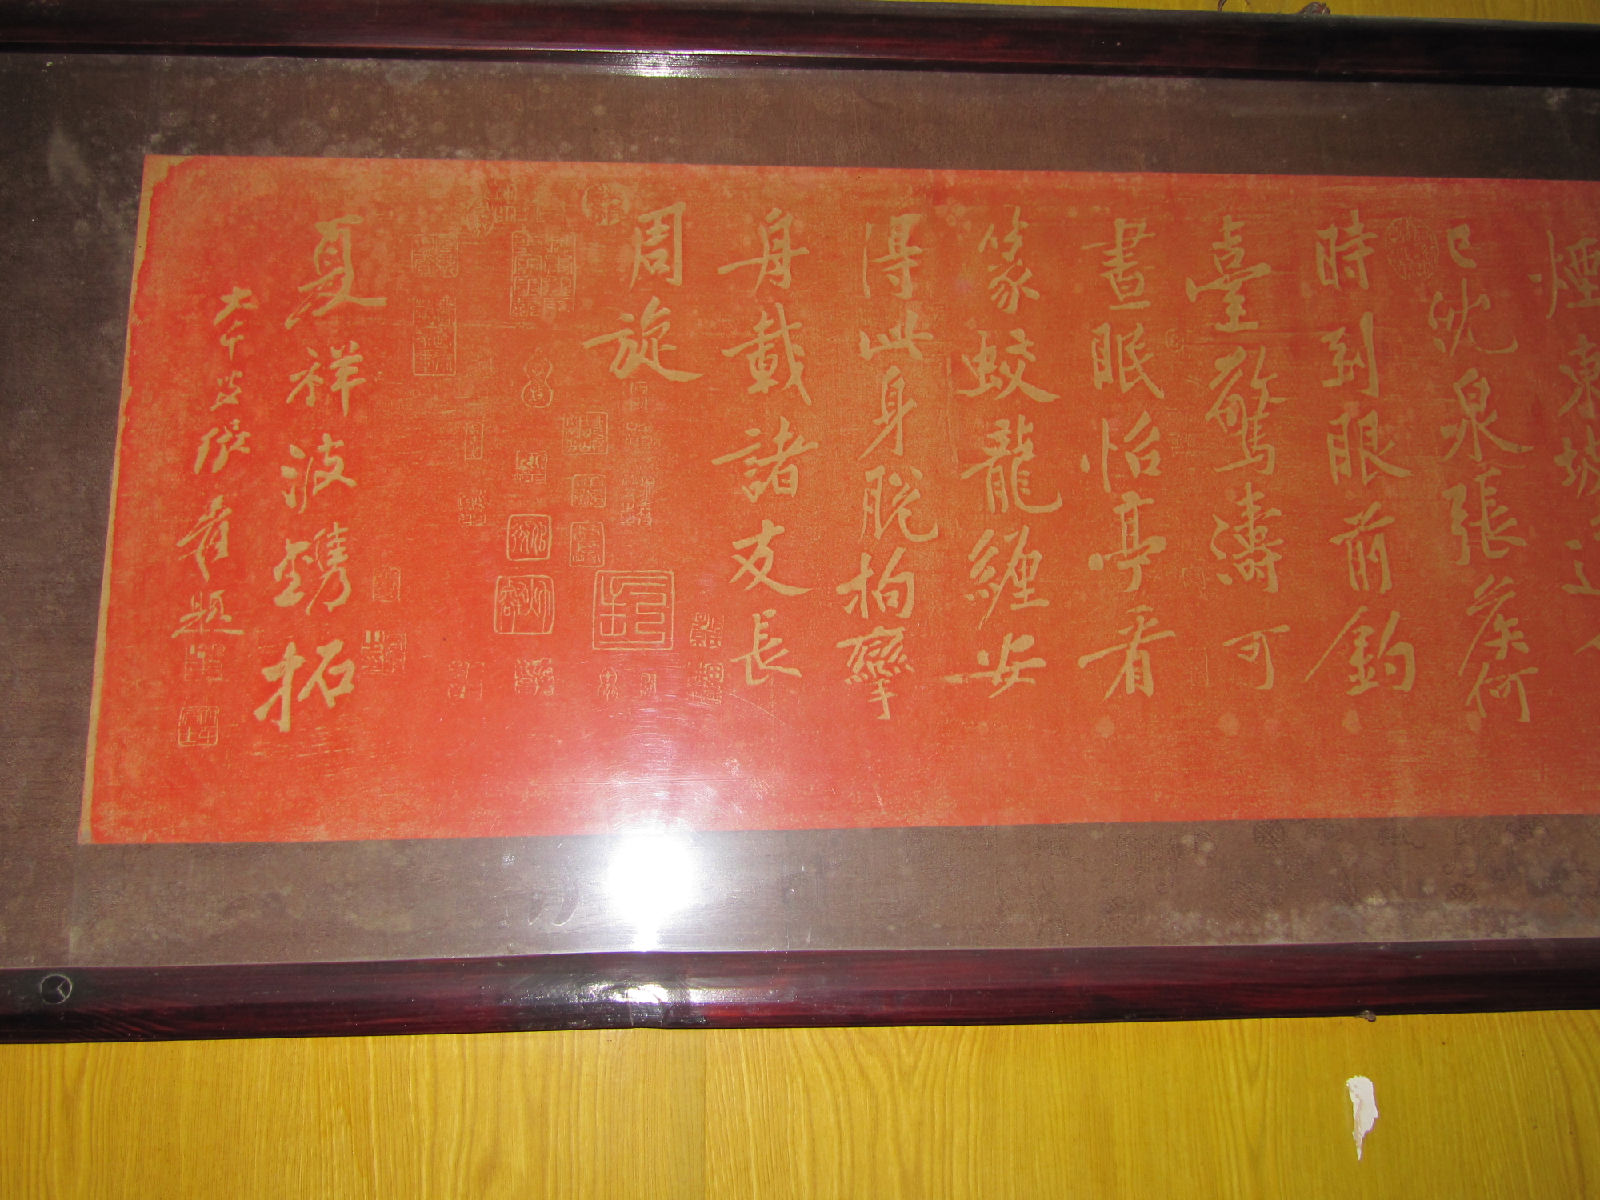 煙東坡道人
已沈泉張侯何
時到眼前釣
臺驚濤可
晝眠怡亭看
篆蛟龍纏安
得此身脫拘攣
舟載諸友長
周旋
夏祥波鐫拓
大千張爰題